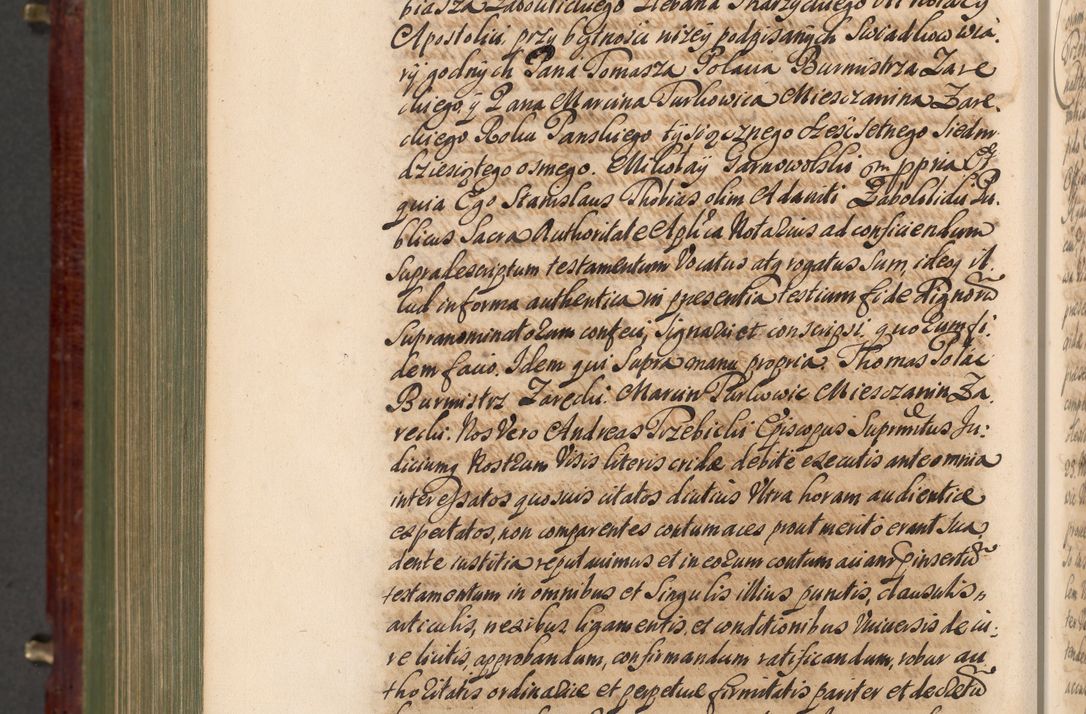 biasza Zabolickiego Plebana Skarzyckiego
Apostolic. przy bytności niżey podpisanych Swiadkow wia,
ry godnych Pana Tomasza Polaca Burmistrza Zare
ckiego, y Pana Marcina Turkowica Miesczanina Zare,
ckiego Roku Panskiego tysiącznego sześćsetnego Siedm
dziesiątego osmego. Mikołay Garnowolski mppria Et
quia Ego Stanislaus Thobias olim Adamiti Zabolitidii Pu,
blicus Sacra Authoritate Aplica Notarius ad conficiendum
supradescriptum testamentum Vocatus atq rogatus sum, ideoq il,
lud in forma authentica in presentia testium fide dignorũ
supranominatorum confeci, signavi et conscripsi, quorum fi
dem facio. Idem qui supra manu propria. Thomas Polac
Burmistrz Zarecki. Marcin Turkowic Miesczanin Za,
recki. Nos Vero Andreas Trzebicki Episcopus Supremtus Ju:
dicium Nostrum Visis literis cridæ debite executis ante omnia
interessatos quosuis citatos diutius Ultra horam audientiæ
expectatos, non comparentes contumaces prout merito erant sua,
dente iustitia reputauimus et in eorum contumaciam pinsertũ
testamentum in omnibus et singulis illius punctis, clausulis,
articulis, nexibus ligamentis, et conditionibus Vniuersis de iu:
re licitis, approbandum, confirmandum ratificandum, robur au,
thoritatis ordinariæ et perpetuæ firmitatis pariter et decretũ